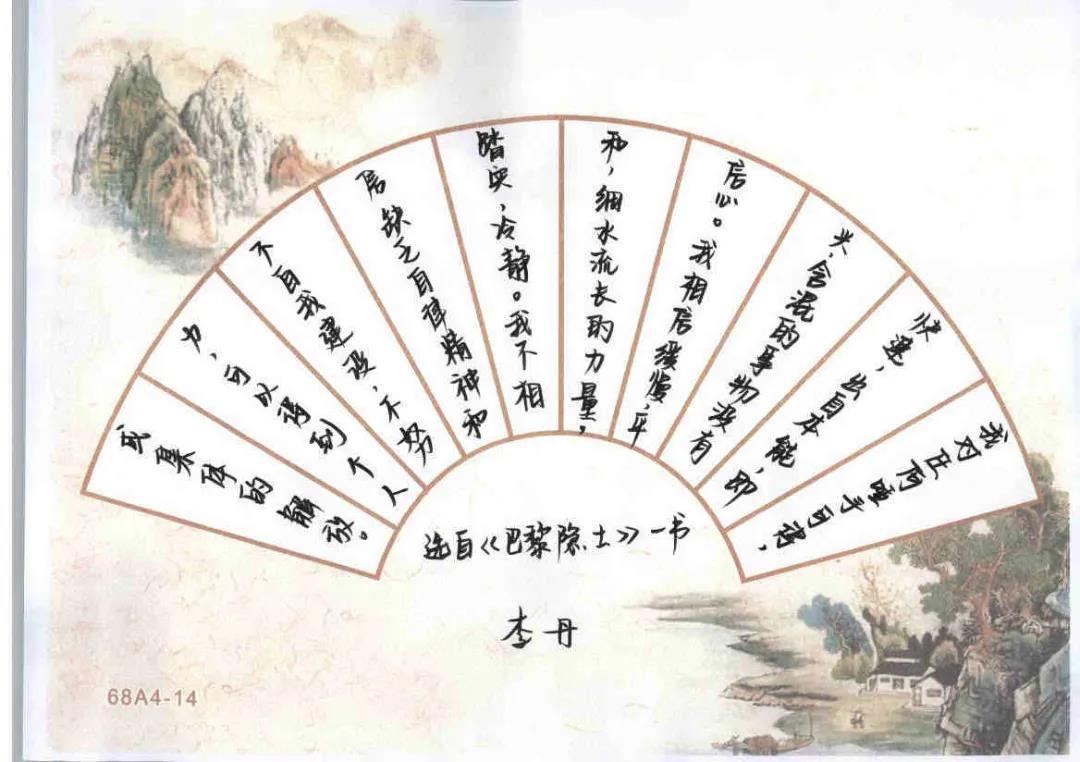 我对任何唾手可得，
快速，出自本能，即
兴、含混的事物没有
信心。我相信缓慢，平
和，细水流长的力量，
踏实，冷静。我不相
信缺乏自律精神和
不自我建设，不努
力，可以得到个人
或集体的解放。
选自《巴黎隐士》一书
李丹
68A4-14